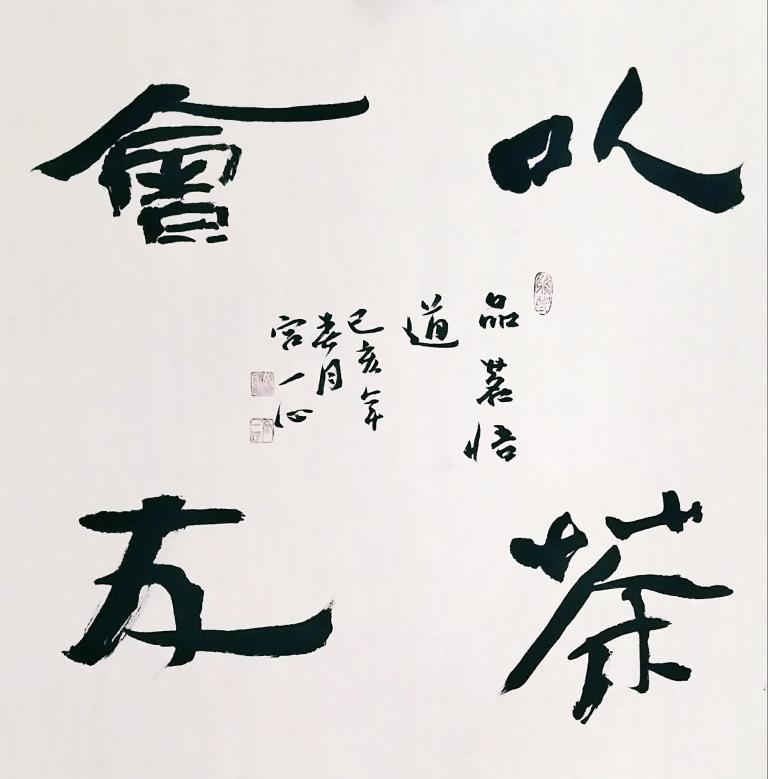 以茶
會友
品茗悟
道
己亥年
春月
宫一心